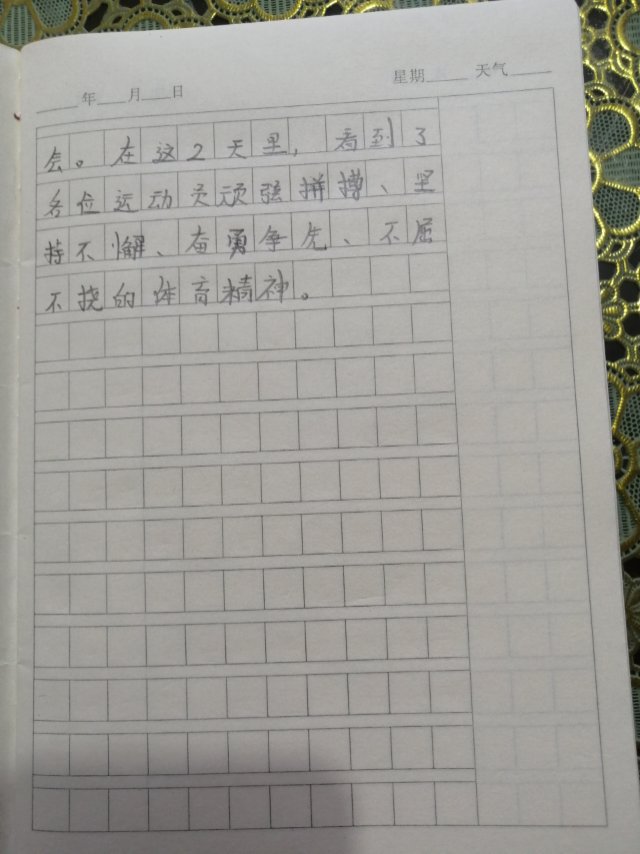 年 月 日 星期 天气
会。在这2天里，看到了
各位运动员顽强拼搏、坚
持不懈、奋勇争先、不屈
不挠的体育精神。